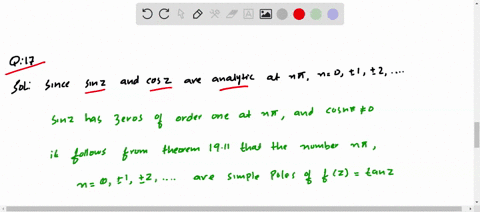 Q:17
Sol: Since sinz and cosz are analytic at nπ, n=0, ±1, ±2, ....
sinz has zeros of order one at nπ, and cosnπ ≠0
it follows from theorem 19.11 that the number nπ,
n=0, ±1, ±2, .... are simple poles of f(z) = tanz